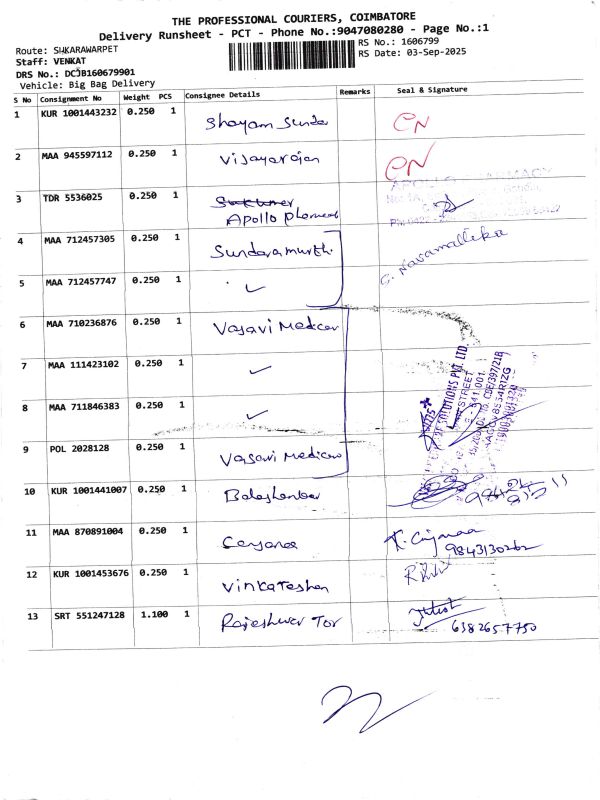 THE PROFESSIONAL COURIERS, COIMBATORE
Delivery Runsheet - PCT - Phone No.:9047080280 - Page No.:1
Route: SUKARAWARPET
RS No.: 1606799
Staff: VENKAT
RS Date: 03-Sep-2025
DRS No.: DCJB160679901
Vehicle: Big Bag Delivery
S No Consignment No Weight PCS Consignee Details Remarks Seal & Signature
1 KUR 1001443232 0.250 1 Shayam Sunda
2 MAA 945597112 0.250 1 Vijayarajan
3 TDR 5536025 0.250 1
Apollo
4 MAA 712457305 0.250 1 Sundaramurthi
5 MAA 712457747 0.250 1 ✓ Navamallika
6 MAA 710236876 0.250 1 Vasavi Medicar
7 MAA 111423102 0.250 1 ✓
8 MAA 711846383 0.250 1 ✓
9 POL 2028128 0.250 1 Vasavi Medicar
SOLUTIONS PVT. LTD.
STREET
10 KUR 1001441007 0.250 1
11 MAA 870891004 0.250 1
9843130262
12 KUR 1001453676 0.250 1 Vinkateshan
13 SRT 551247128 1.100 1 Rajeshwar Tor
6382657750